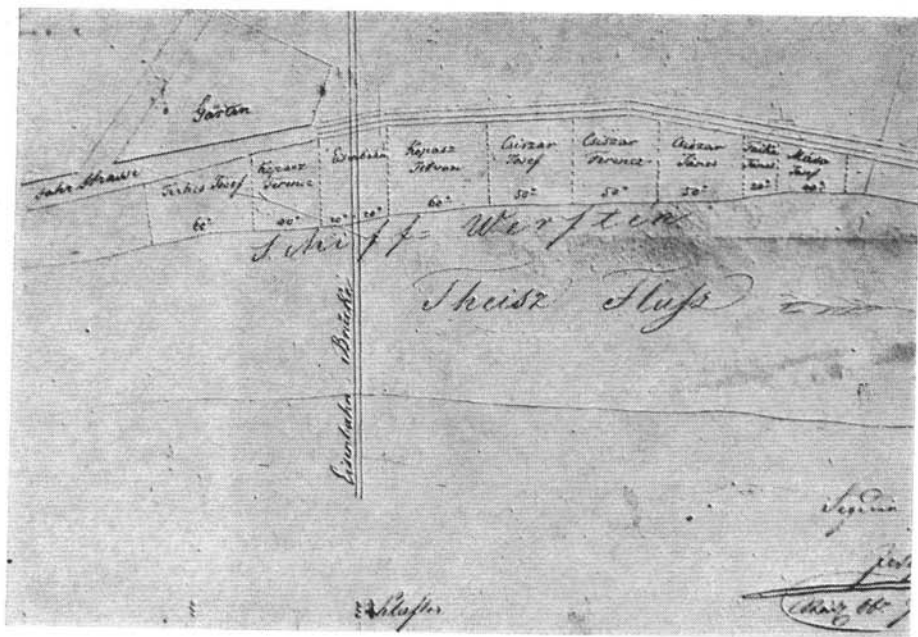 Gärten
Strasse
Josef
60°
Kopasz
Ferencz
40°
Eisenbahn
20° 20°
Kopasz
Istvan
60°
Csiszar
Josef
50°
Csiszar
Ferencz
50°
Csiszar
János
50°
János
20°
Josef
40°
Schiff= Werften
Theisz Fluß
Eisenbahn Brücke
Klafter